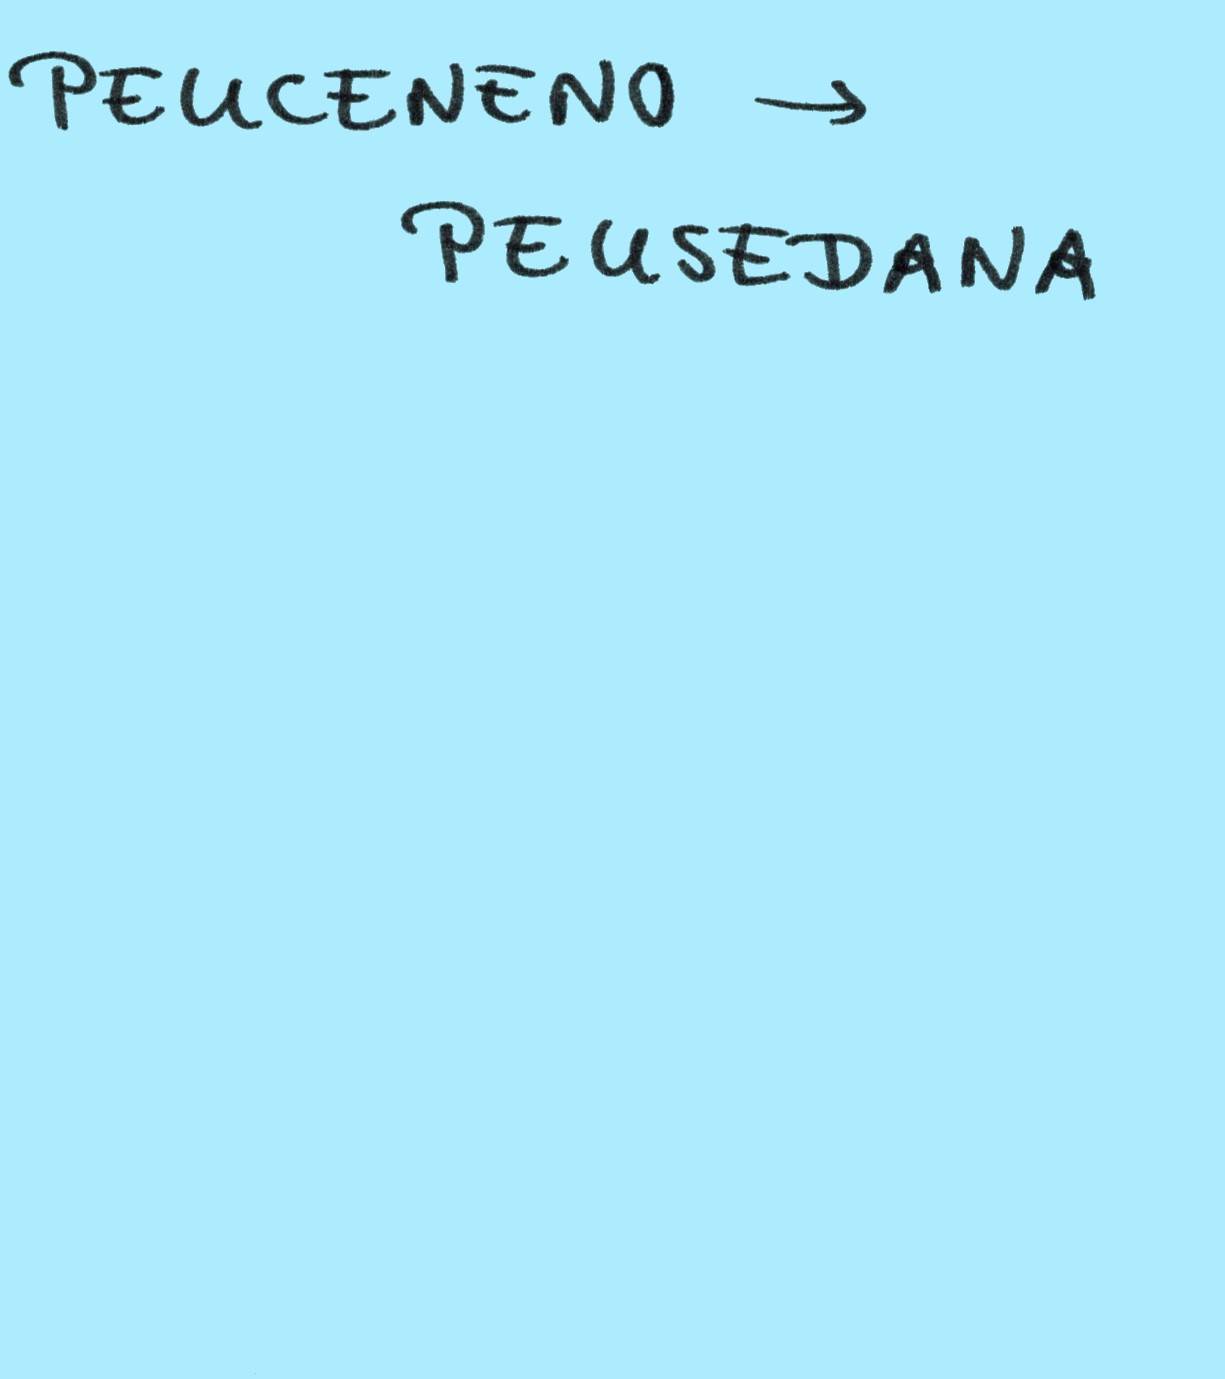 PEUCENENO →
PEUSEDANA